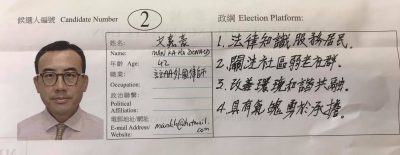 候選人編號 Candidate Number 2
政綱 Election Platform:
姓名
Name:
文嘉豪
MAN KA HO DONALD
年齡 Age: 42
職業:
Occupation:
註冊外國律師
政治聯繫:
Political
Affiliation:
電郵地址/網址
E-mail Address/
Website:
hotmail.
com
1. 法律知識服務居民.
2. 關注社區弱老社群.
3. 改善環境和諧共融.
4. 具有氣魄勇於承擔.